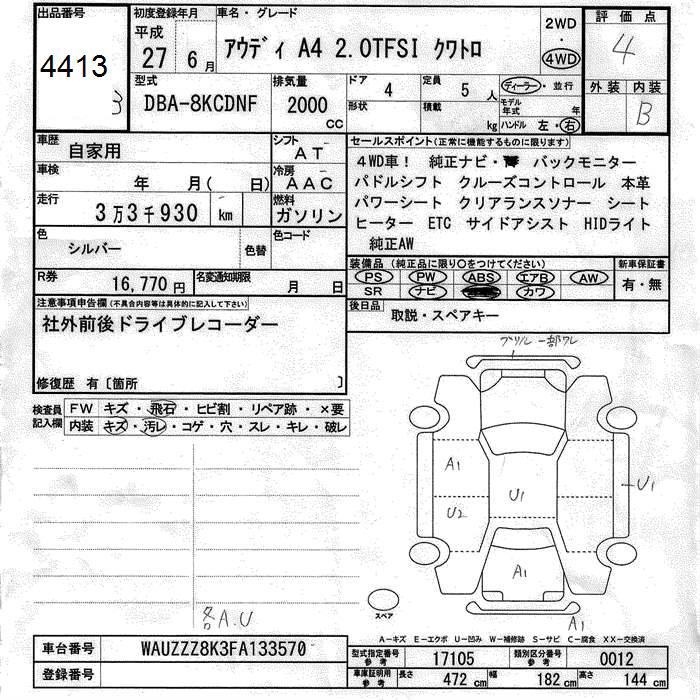 出品番号
4413
3
初度登録年月
平成
27 6月
車名・グレード
アウディ A4 2.0TFSI クワトロ
2WD
・
4WD
評価点
4
外装 内装
B
型式
DBA-8KCDNF
排気量
2000
CC
ドア
4
形状
定員
5 人
積載
kg
ディーラー・並行
モデル年式 年
ハンドル 左・右
車歴
自家用
シフト
AT
車検
年 月( 日)
冷房
AAC
走行
3万3千930 km
燃料
ガソリン
色
シルバー
色替
色コード
R券
16,770円
名変通知期限
月 日
セールスポイント(正常に機能するものに限ります)
4WD車! 純正ナビ・ バックモニター
パドルシフト クルーズコントロール 本革
パワーシート クリアランスソナー シート
ヒーター ETC サイドアシスト HIDライト
純正AW
装備品(純正品に限り○をつけてください)
PS PW ABS エアB AW
SR ナビ カワ
新車保証書
有・無
後日品
取説・スペアキー
注意事項申告欄(不具合内容等は具体的に記入して下さい)
社外前後ドライブレコーダー
修復歴 有〔箇所 〕
検査員記入欄
FW キズ・飛石・ヒビ割・リペア跡・×要
内装 キズ・汚レ・コゲ・穴・スレ・キレ・破レ
グリル一部ワレ
A1
U2
U1
U1
A1
A1
スペア
各A.U
A-キズ E-エクボ U-凹み W-補修跡 S-サビ C-腐食 XX-交換済
車台番号
WAUZZZ8K3FA133570
登録番号
型式指定番号
参考
17105
類別区分番号
参考
0012
車庫証明用
参考
長さ
472 cm
幅
182 cm
高さ
144 cm